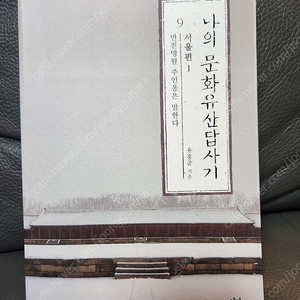 나의 문화유산답사기
9
서울편 1
만천명월 주인옹은 말한다
유홍준 지음